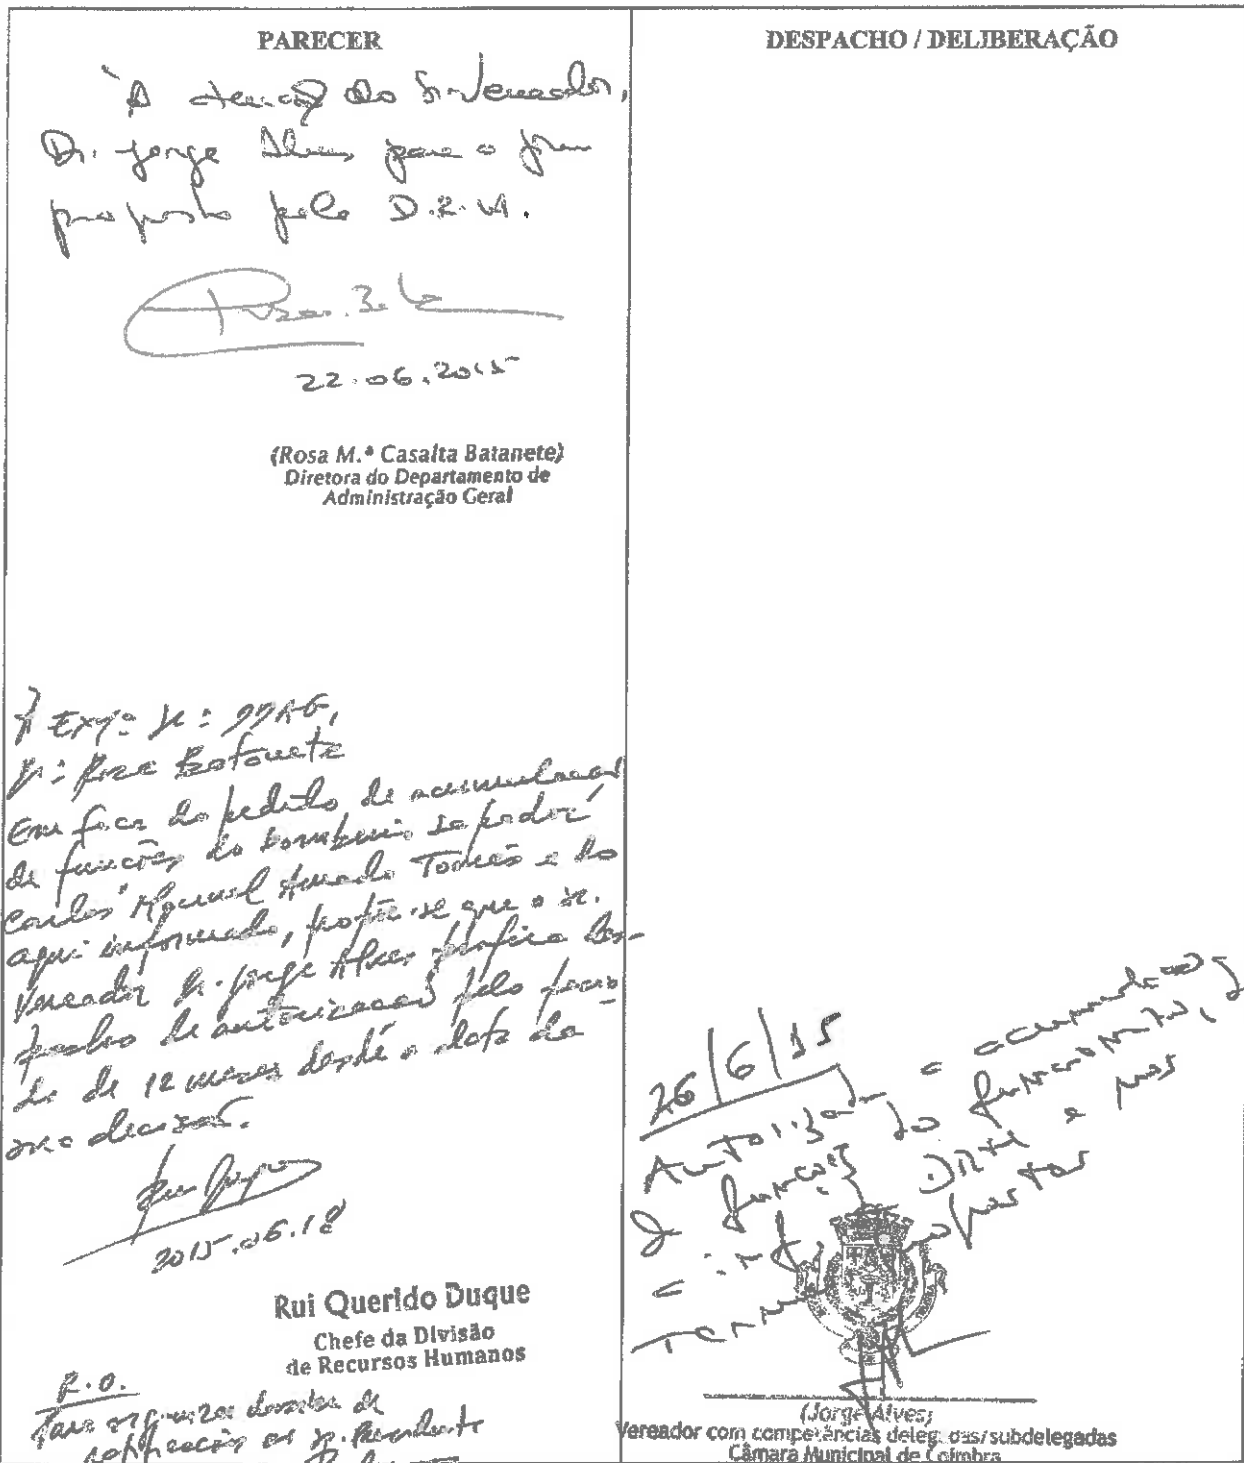 PARECER
À atenção do Sr. Vereador,
Dr. Jorge Alves para o fim
proposto pelo D.R.H.
22.06.2015
(Rosa M.ª Casalta Batanete)
Diretora do Departamento de
Administração Geral
À Exmª Srª DDAG,
Drª Rosa Batanete
Em face do pedido de acumulação
de funções do bombeiro sapador
Carlos Manuel Amado Tomás e do
aqui informado, propõe-se que o Sr.
Vereador Dr. Jorge Alves profira des-
pacho de autorização pelo perío-
do de 12 meses desde a data da
sua decisão.
2015.06.18
Rui Querido Duque
Chefe da Divisão
de Recursos Humanos
R.O.
Para organizar
ao Sr.
DESPACHO / DELIBERAÇÃO
26/6/15
a acumulação
de funções do
e nos
termos propostos
(Jorge Alves)
Vereador com competências delegadas/subdelegadas
Câmara Municipal de Coimbra